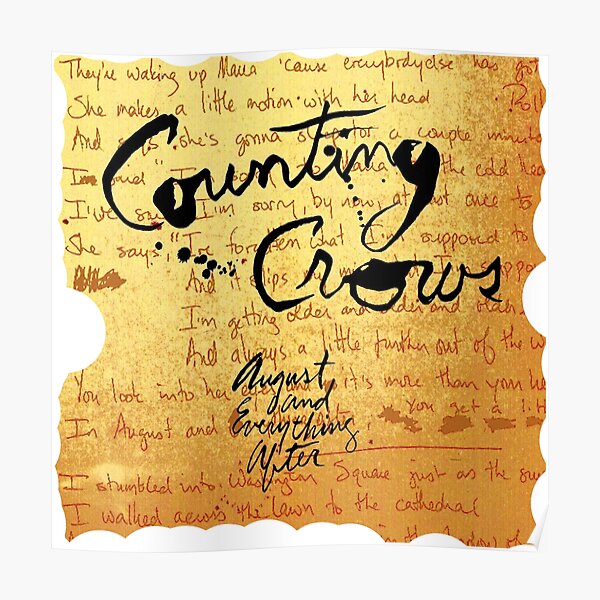 They're waking up Maria 'cause everybodyelse has got
She makes a little motion with her head
And says she's gonna sleep for a couple minute
Counting
I said I'm sorry to Maria the cold hea
I've said I'm sorry by now at not once to
She says "I've forgotten what I'm supposed to
And it slips my
Crows
I'm getting older and older and older
And always a little further out of the w
You look into her eyes it's more than you
August
and
Everything
After
You get a
In August and
I stumbled into Washington Square just as the sun
I walked across the lawn to the cathedral